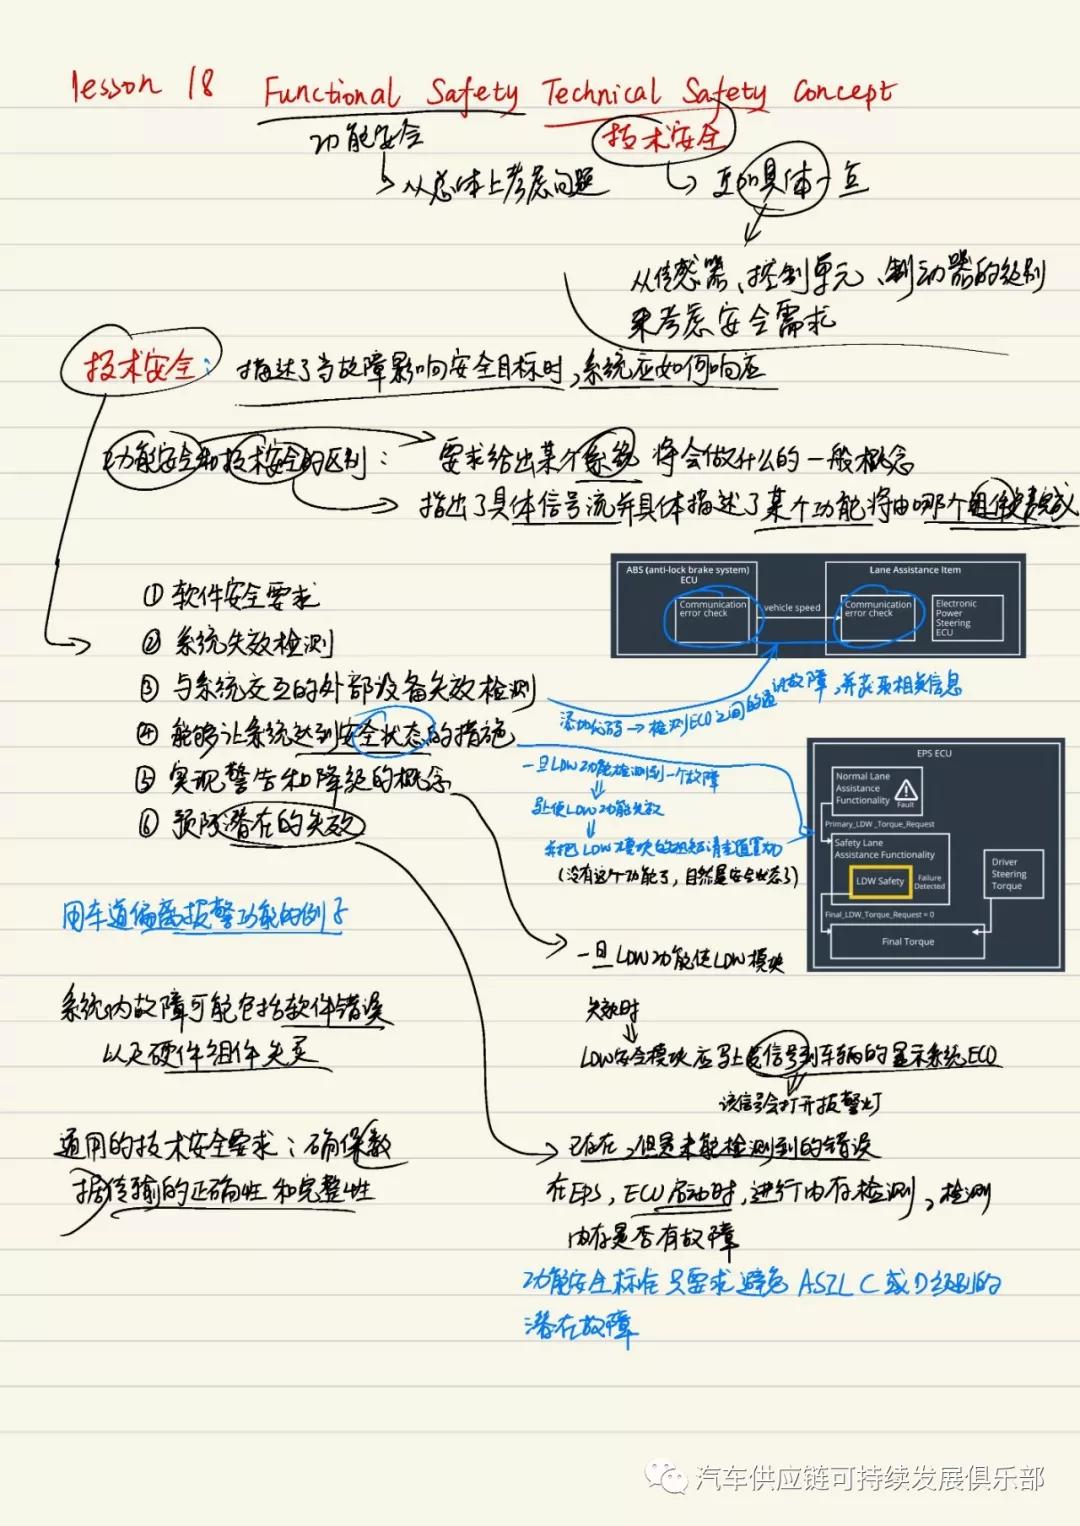 lesson 18 Functional Safety Technical Safety Concept
功能安全 技术安全
从总体上考虑问题 更加具体一点
从传感器、控制单元、制动器的级别
来考虑安全需求
技术安全: 描述了当故障影响安全目标时,系统应如何响应
功能安全和技术安全的区别: 要求给出某个系统将会做什么的一般概念
指出了具体信号流并具体描述了某个功能将由哪个组件完成
ABS (anti-lock brake system)
ECU
Communication
error check
vehicle speed
Lane Assistance Item
Communication
error check
Electronic
Power
Steering
ECU
① 软件安全要求
② 系统失效检测
③ 与系统交互的外部设备失效检测
添加代码→检测ECU之间的通讯故障,并获取相关信息
④ 能够让系统达到安全状态的措施
一旦LDW功能检测到一个故障
马上使LDW功能失效
并把LDW模块的扭矩请求置为0
(没有这个功能了,自然是安全状态了)
⑤ 实现警告和降级的概念
⑥ 预防潜在的失效
EPS ECU
Normal Lane
Assistance
Functionality
Fault
Primary_LDW _Torque_Request
Safety Lane
Assistance Functionality
LDW Safety
Failure
Detected
Driver
Steering
Torque
Final_LDW_Torque_Request = 0
Final Torque
用车道偏离报警功能的例子
一旦LDW功能使LDW模块
失效时
LDW安全模块应马上发信号到车辆的显示系统ECU
该信号会打开报警灯
系统内故障可能包括软件错误
以及硬件组件失灵
通用的技术安全要求:确保数
据传输的正确性和完整性
已存在,但是未能检测到的错误
在EPS,ECU启动时,进行内存检测,检测
内存是否有故障
功能安全标准只要求避免ASIL C或D级别的
潜在故障
汽车供应链可持续发展俱乐部